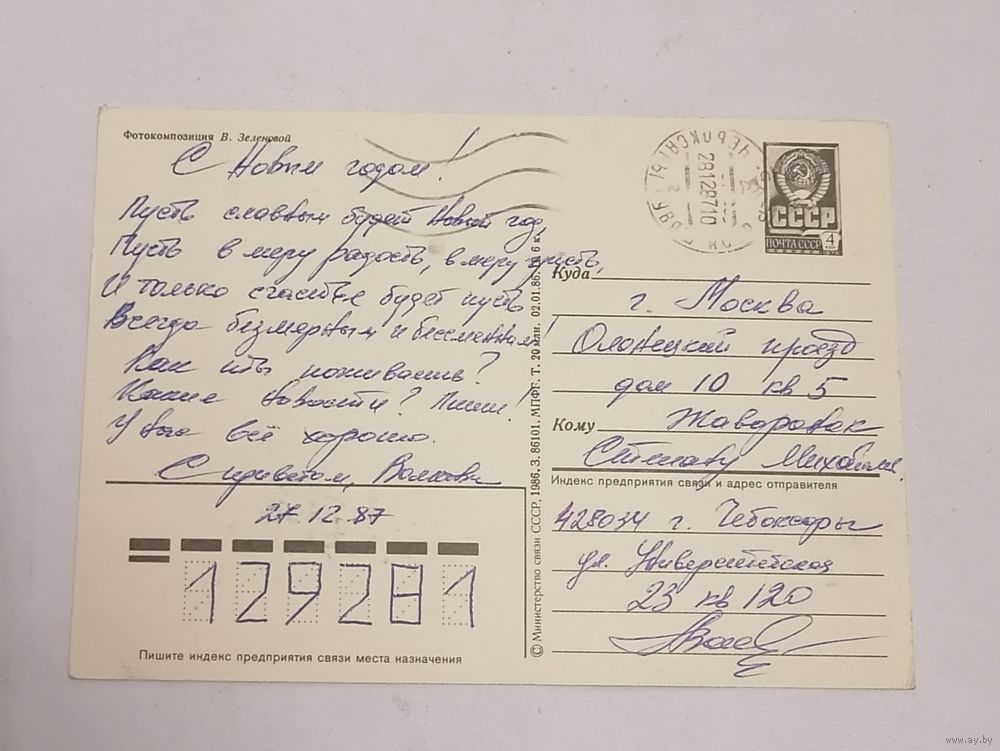 Фотокомпозиция В. Зеленовой
С Новым годом!
Пусть славным будет Новый год,
Пусть в меру радость, в меру грусть,
И только счастье будет пусть
Всегда безмерным и бессменным!
Как ты поживаешь?
Какие новости? Пиши!
У нас всё хорошо.
С приветом, Волковы
27.12.87
129281
Пишите индекс предприятия связи места назначения
© Министерство связи СССР. 1986. З. 86101. МПФГ. Т. 20 млн. 02.01.86. 6 к.
28128710
СССР
ПОЧТА СССР 4
Куда
г. Москва
Олонецкий проезд
дом 10 кв 5
Кому
Жаворонок
Степану
Индекс предприятия связи и адрес отправителя
428034 г. Чебоксары
ул. Университетская
23 кв 120
www.ay.by